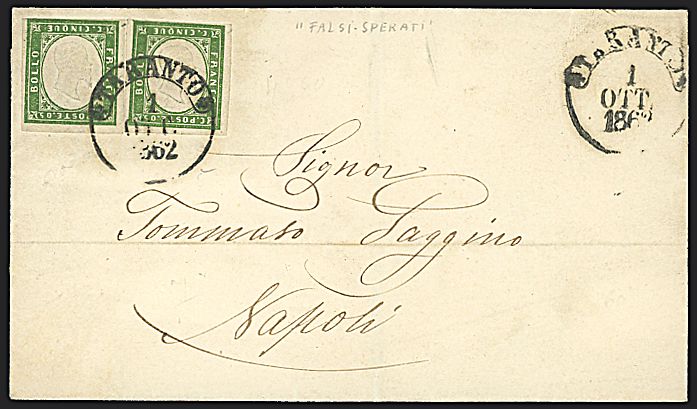 "FALSI-SPERATI"
C. CINQUE
BOLLO
FRAN
C. POSTE. 05
C. CINQUE
BOLLO
FRAN
C. POSTE. 05
TARANTO
1
OTT.
1862
TARANTO
1
OTT.
1862
Signor
Tommaso Saggino
Napoli